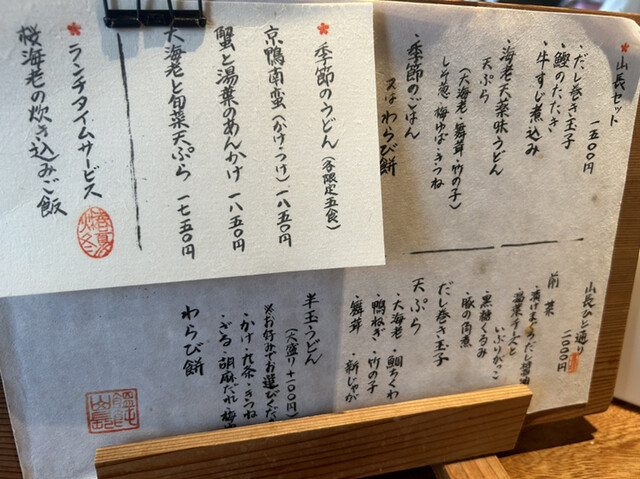 山長セット
一五〇〇円
・だし巻き玉子
・鰹のたたき
・牛すじ煮込み
・海老天薬味うどん
天ぷら
(大海老・舞茸・竹の子)
しそ葱・梅ゆば・きつね
・季節のごはん
又はわらび餅
季節のうどん(各限定五食)
京鴨南蛮(かけ・つけ)一八五〇円
蟹と湯葉のあんかけ 一八五〇円
大海老と旬菜天ぷら 一七五〇円
ランチタイムサービス
桜海老の炊き込みご飯
山長ひと通り
二〇〇〇円
前菜
・漬けまぐろだし醤油
いぶりがっこ
・黒糖くるみ
・豚の角煮
だし巻き玉子
天ぷら
・大海老・鯛ちくわ
・鴨ねぎ・竹の子
・舞茸・新じゃが
半玉うどん
(大盛り+一〇〇円)
※お好みでお選びくだ
・かけ・九条・きつね
・ざる・胡麻だれ・梅
わらび餅